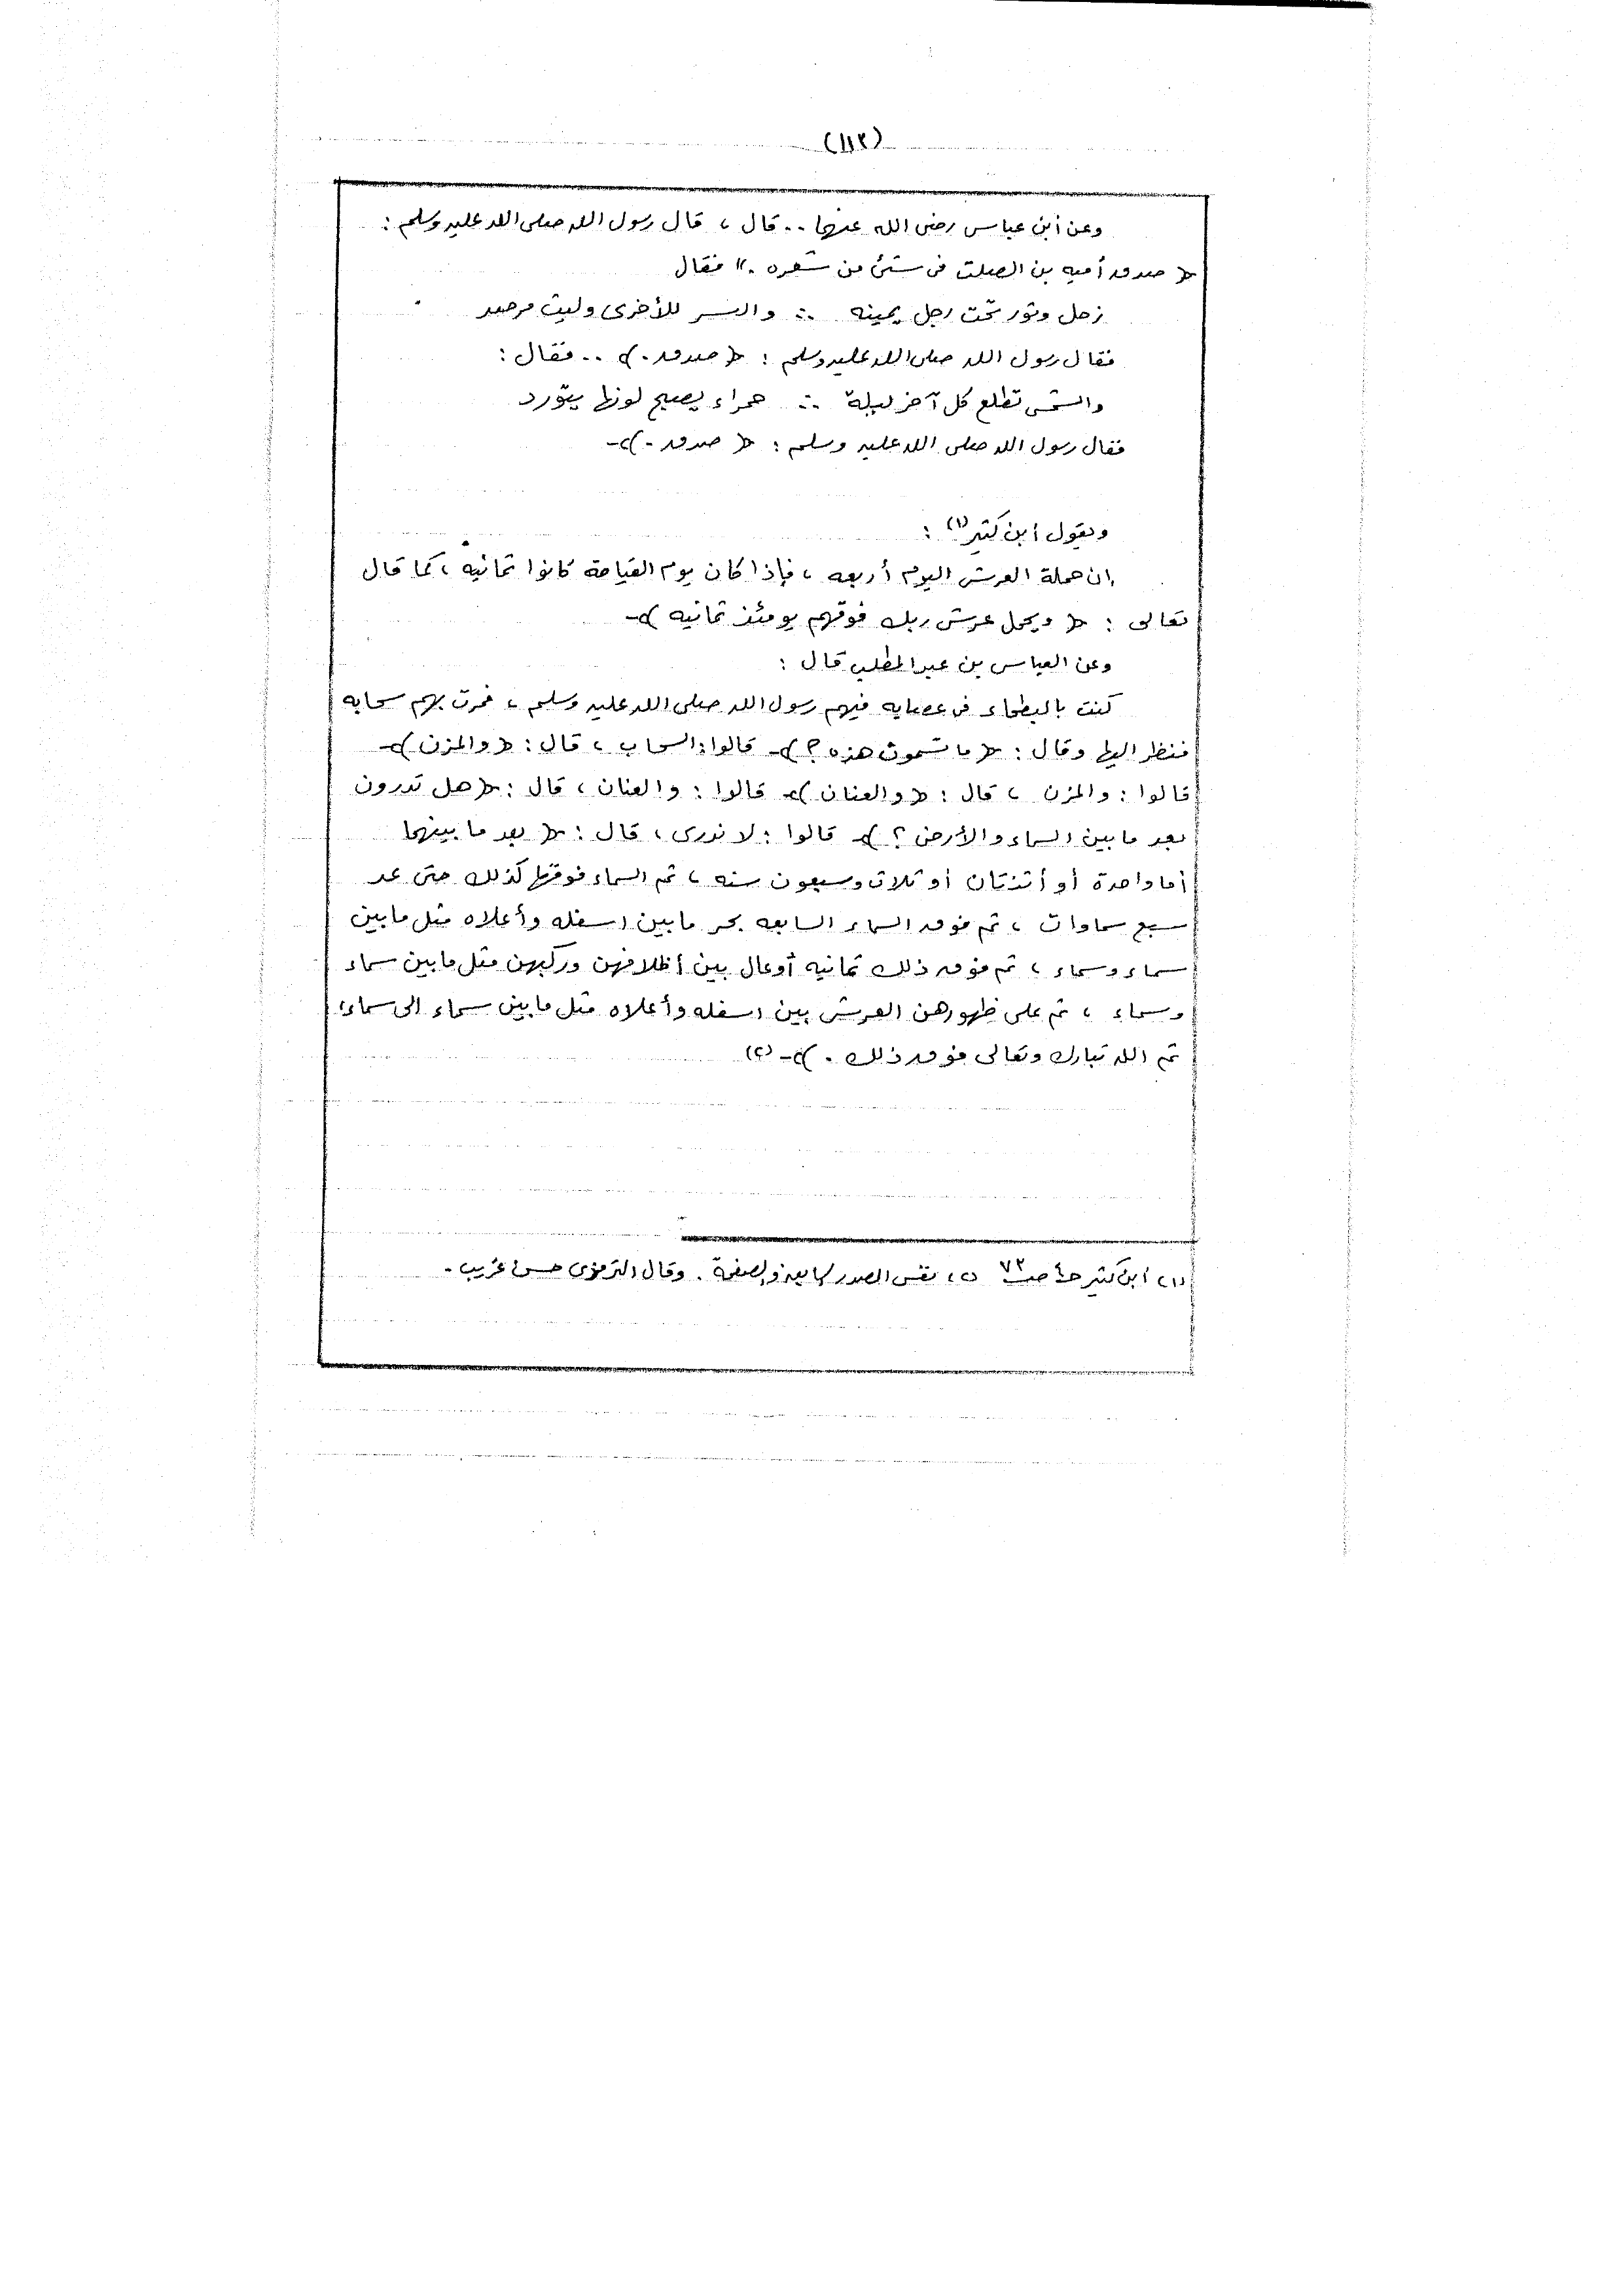 (١١٢)
وعن أبن عباس رضى الله عنهما .. قال ، قال رسول الله صلى الله عليه وسلم :
« صدق أميه بن الصلت فى شئ من شعره . » فقال
زحل وثور تحت رجل يمينه ∴ والنسر للأخرى وليث مرصد
فقال رسول الله صلى الله عليه وسلم : « صدق . » .. فقال :
والشمس تطلع كل آخر ليلة ∴ حمراء يصبح لونها يتورد
فقال رسول الله صلى الله عليه وسلم : « صدق . »
ويقول أبن كثير (١) :
إن حملة العرش اليوم أربعه ، فإذا كان يوم القيامة كانوا ثمانيه ، كما قال
تعالى : « ويحمل عرش ربك فوقهم يومئذ ثمانيه »
وعن العباس بن عبد المطلب قال :
كنت بالبطحاء فى عصابه فيهم رسول الله صلى الله عليه وسلم ، فمرت بهم سحابه
فنظر اليها وقال : « ما تسمون هذه ؟ » قالوا : السحاب ، قال : « والمزن »
قالوا : والمزن ، قال : « والعنان » قالوا : والعنان ، قال : « هل تدرون
بعد ما بين السماء والأرض ؟ » قالوا : لا ندرى ، قال : « بعد ما بينهما
أما واحدة أو أثنتان أو ثلاث وسبعون سنه ، ثم السماء فوقها كذلك حتى عد
سبع سماوات ، ثم فوق السماء السابعه بحر ما بين اسفله وأعلاه مثل ما بين
سماء وسماء ، ثم فوق ذلك ثمانيه أوعال بين أظلافهن وركبهن مثل ما بين سماء
وسماء ، ثم على ظهورهن العرش بين اسفله وأعلاه مثل ما بين سماء الى سماء ،
ثم الله تبارك وتعالى فوق ذلك . » (٢)
(١) أبن كثير حـ٤ صـ٧٢ (٢) نفس المصدر السابق والصفحة . وقال الترمزى حسن غريب .